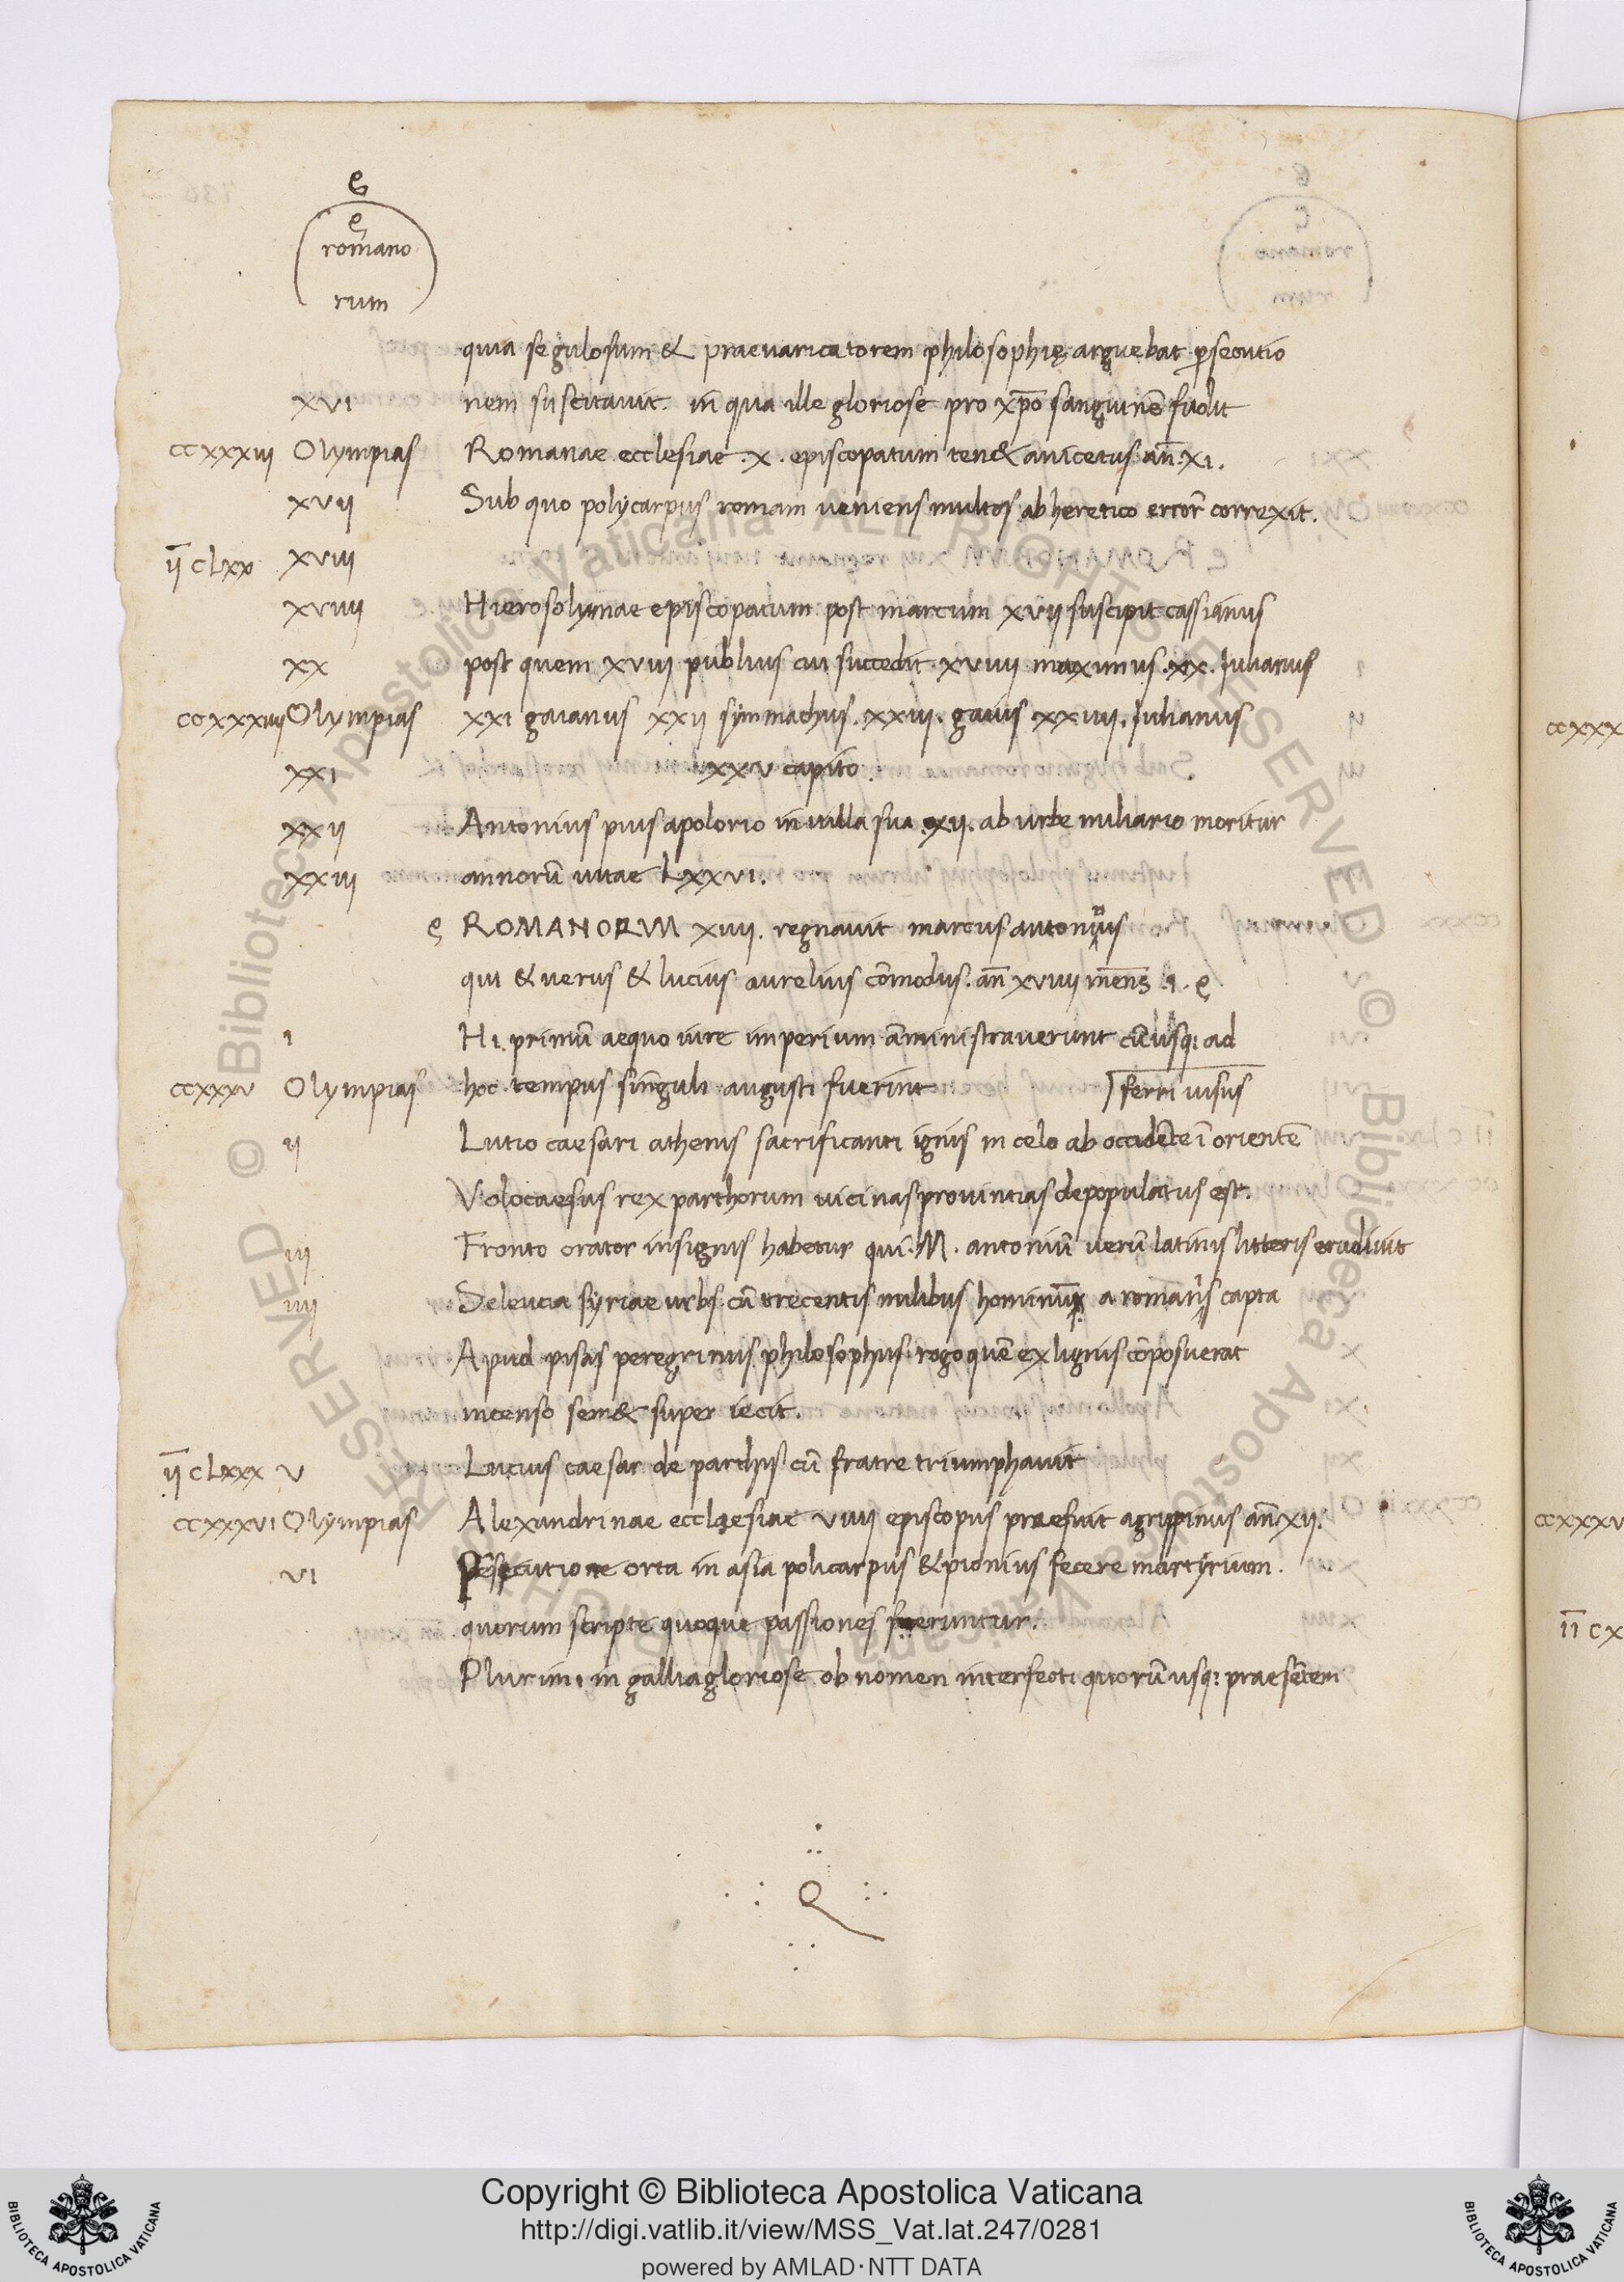 ę
ę
romano
rum
quia se gulosum & praevaricatorem philosophię arguebat ꝑsecutio
XVI nem suscitavit. in qua ille gloriose pro xp̄o sanguinē fudit
CCXXXIII Olympias Romanae ecclesiae .X. episcopatum ten& anicetus an̄. XI.
XVII Sub quo polycarpus romam veniens multos ab heretico error̄ correxit.
īī CLXX XVIII
XVIIII Hierosolymae episcopatum post marcum XVII suscipit cassianus
XX post quem XVIII publius cui succedit XVIIII maximus .XX. Iulianus
CCXXXIIII Olympias XXI gaianus XXII symmachus. XXIII. gaius XXIIII. Iulianus
XXI XXV capito.
XXII Antonius pius apolorio in villa sua XII. ab urbe miliario moritur
XXIII annorū vitae LXXVI.
ę ROMANORVM XIIII. regnavit marcus antoninus
qui & verus & lucius aurelius cōmodus. an̄ XVIIII mens̄ I. ę
I Hi primū aequo iure imperium āministraverunt cū usq; ad
CCXXXV Olympias hoc tempus singuli augusti fuerint ferri visus
II Lutio caesari athenis sacrificanti ignis in celo ab occidēte ī orientē
Volocaesus rex parthorum vicinas provintias depopulatus est.
III Fronto orator insignis habetur qui .M. antoniū verū latinis litteris erudivit
IIII Seleucia syriae urbs cū trecentis milibus hominū a romanis capta
Apud pisas peregrinus philosophus rogo quē ex lignis cōposuerat
incenso sem& super iecit.
īī CLXXX V Lucius caesar de parthis cū fratre triumphavit
CCXXXVI Olympias Alexandrinae ecclaesiae VIIII episcopus praefuit agrippinus an̄. XII.
VI Persecutione orta in asia policarpus & pionius fecere martyrium.
quorum scripte quoque passiones feruntur.
Plurimi in gallia gloriose ob nomen interfecti quorū usq; praesētem
CCXXX
CCXXXV
īī CX
Copyright © Biblioteca Apostolica Vaticana
http://digi.vatlib.it/view/MSS_Vat.lat.247/0281
powered by AMLAD·NTT DATA
BIBLIOTECA APOSTOLICA VATICANA
BIBLIOTECA APOSTOLICA VATICANA